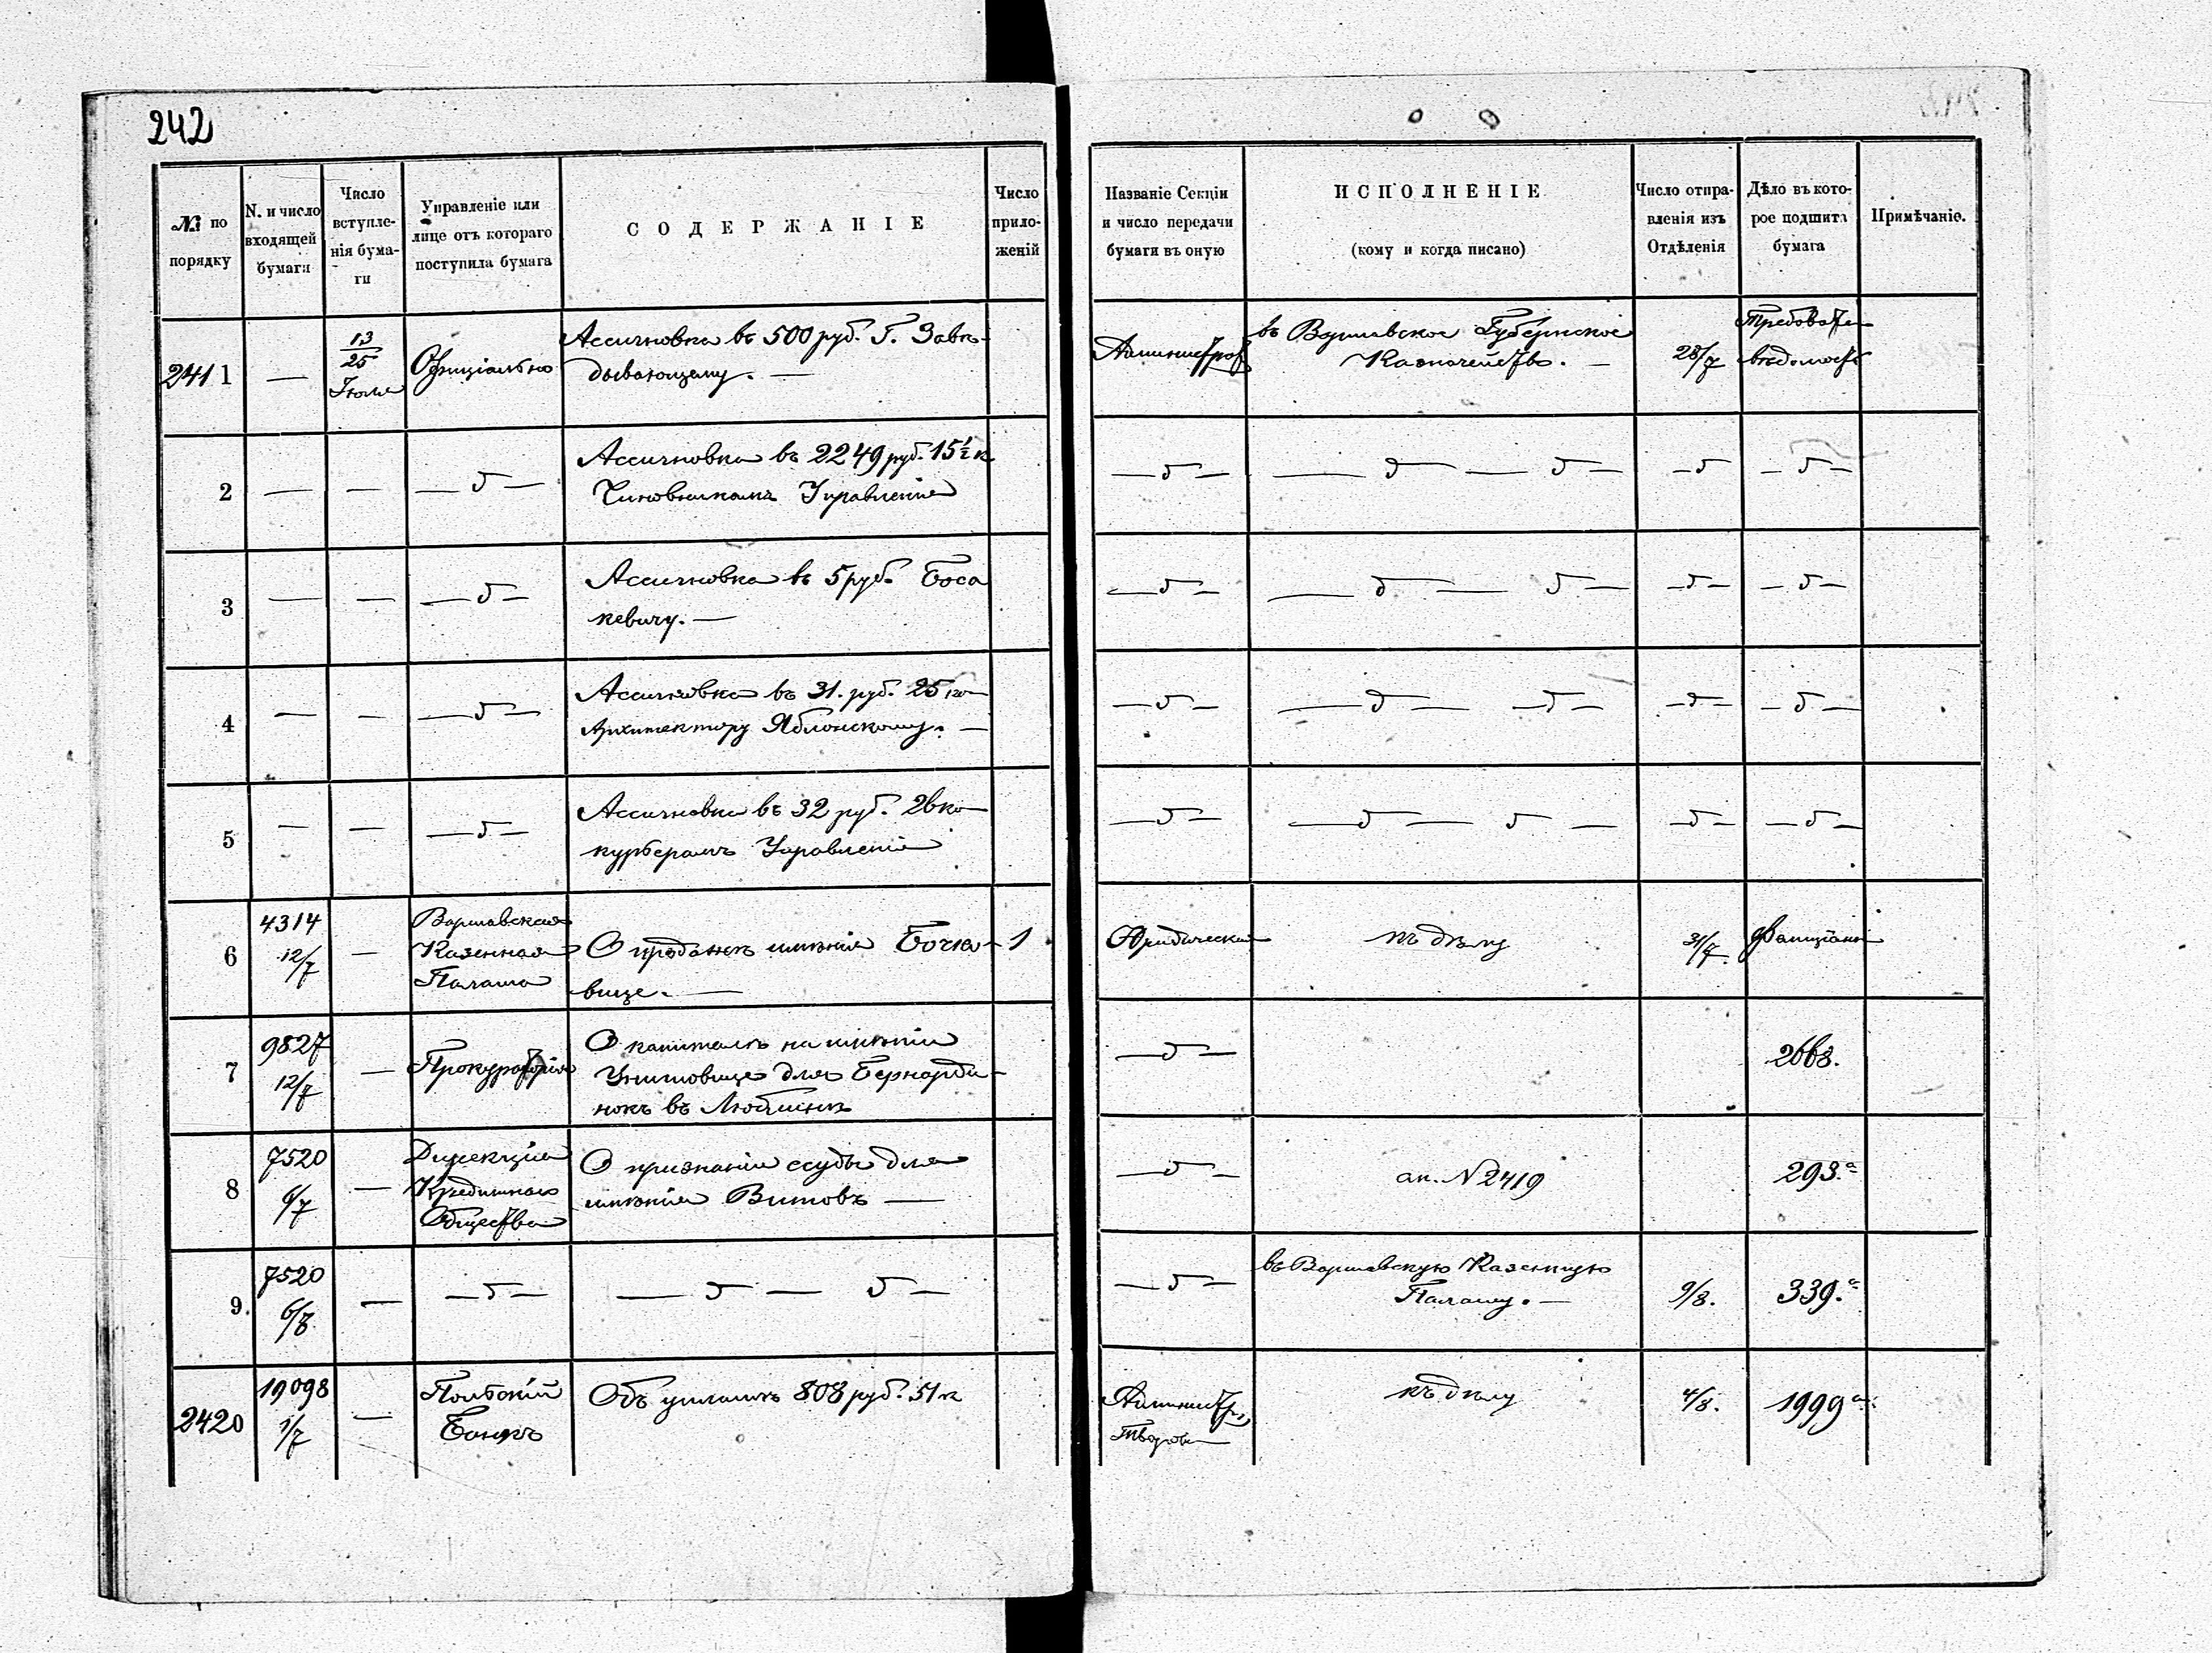 242
№ по порядку
N. и число входящей бумаги
Число вступле-нія бума-ги
Управленіе или лице отъ котораго поступила бумага
СОДЕРЖАНІЕ
Число прило-женій
Названіе Секціи и число передачи бумаги въ оную
ИСПОЛНЕНІЕ
(кому и когда писано)
Число отпра-вленія изъ Отдѣленія
Дѣло въ кото-рое подшита бумага
Примѣчаніе.
2411 — 13/25 Іюля Офиціально
Ассигновка въ 500 руб. Г. Завѣ-
дывающему. —
въ Варшавское Губернское
Казначейство. —
28/7
Требоват.
вѣдомость
2 — — — б —
Ассигновка въ 2249 руб. 15½ к
Чиновникамъ Управленія
— б — — б — б — — б — б —
3 — — — б —
Ассигновка въ 5 руб. Боса
кевичу. —
— б — — б — б — — б — — б —
4 — — — б —
Ассигновка въ 31. руб. 25 ко
Архитектору Яблонскому. —
— б — — б — — б — — б — — б —
5 — — — б —
Ассигновка въ 32 руб. 26 ко
курьерамъ Управленія
— б — — б — б — — б — — б —
6 4314 12/7 —
Варшавская
Казенная
Палата
О продажѣ имѣнія Бочко- 1
вице. —
Юридическая
къ дѣлу
31/7.
7 9827 12/7 — Прокураторія
О капиталѣ на имѣніи
для Бернарди-
нокъ въ Люблинѣ
— б —
2668.
8 7520 6/7 —
Дирекція
Кредитнаго
Общества
О признаніи ссуды для
имѣнія Витовъ —
— б —
ан. N 2419
293.а
9. 7520 6/8 — — б — — б — б —
— б —
въ Варшавскую Казенную
Палату. —
9/8.
339.а
2420 19098 1/7 —
Польскій
Банкъ
Объ уплатѣ 808 руб. 51 к
къ дѣлу
4/8.
1999а.